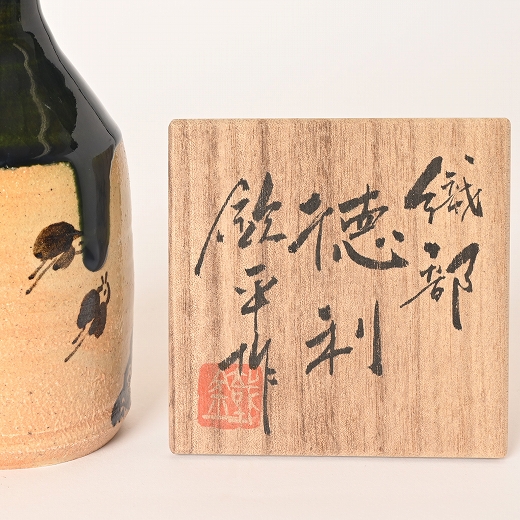 織部
徳利
欽平作